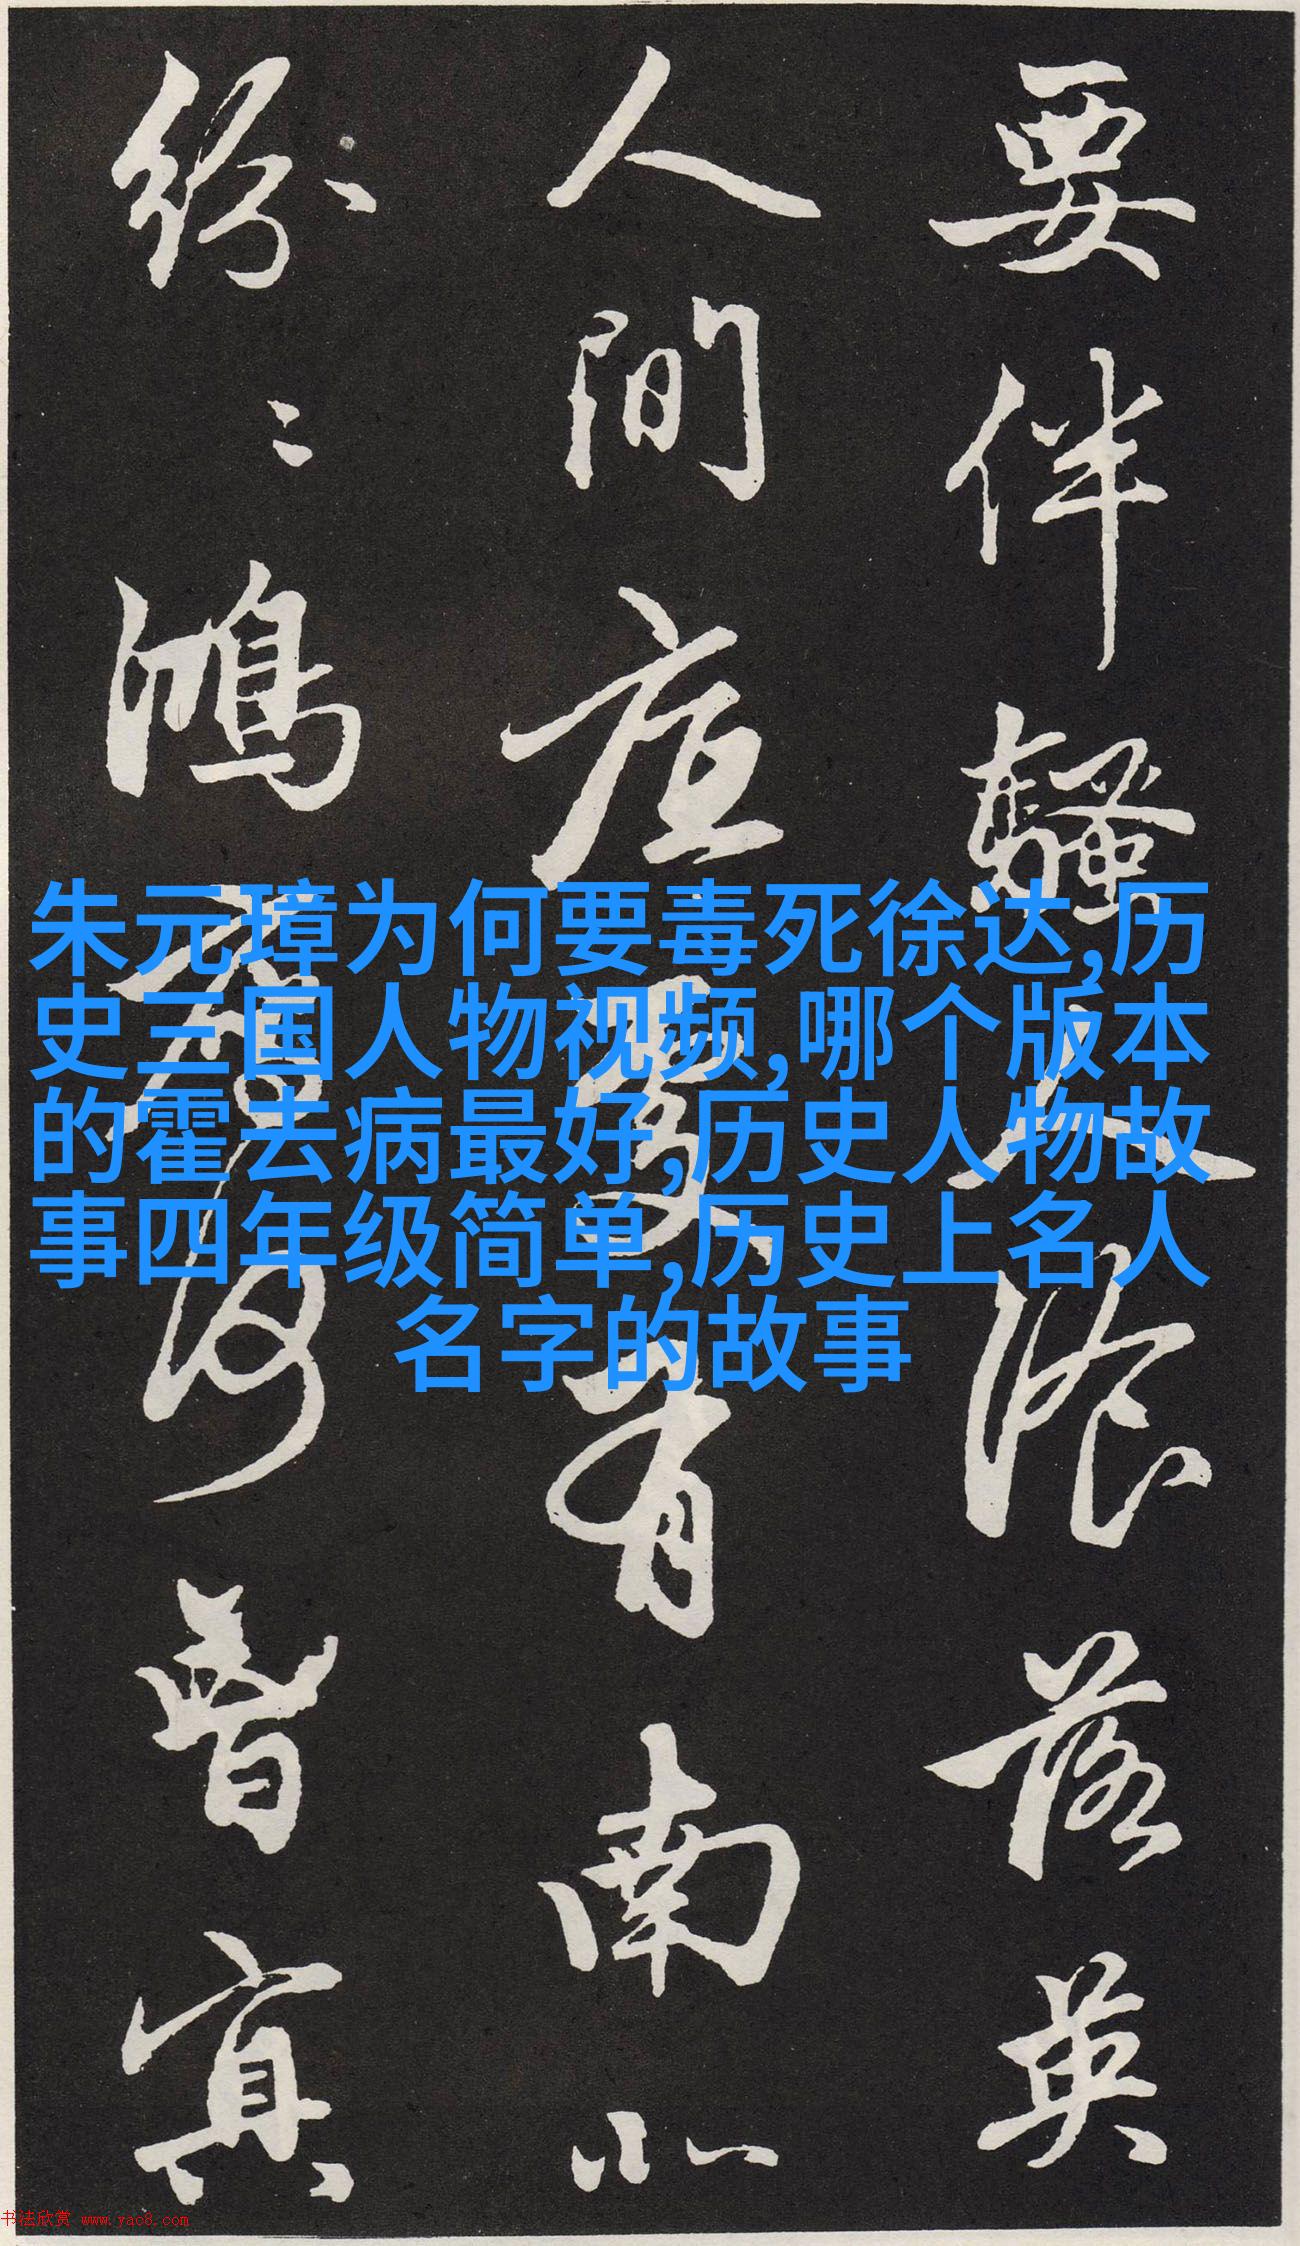 要伴騷人湌落英
人間底處有南北
紛々鴻鴈何曾冥
朱元璋为何要毒死徐达,历
史三国人物视频,哪个版本
的霍去病最好,历史人物故
事四年级简单,历史上名人
名字的故事
书法欣赏 www.yac8.com